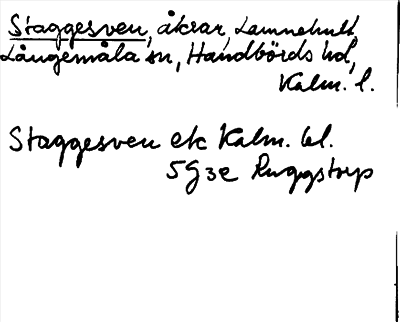 Staggesven, åkrar, Lamnehult,
Långemåla sn, Handbörds hd,
Kalm. l.
Staggesven ek Kalm. bl.
5G3e Ruggstorp